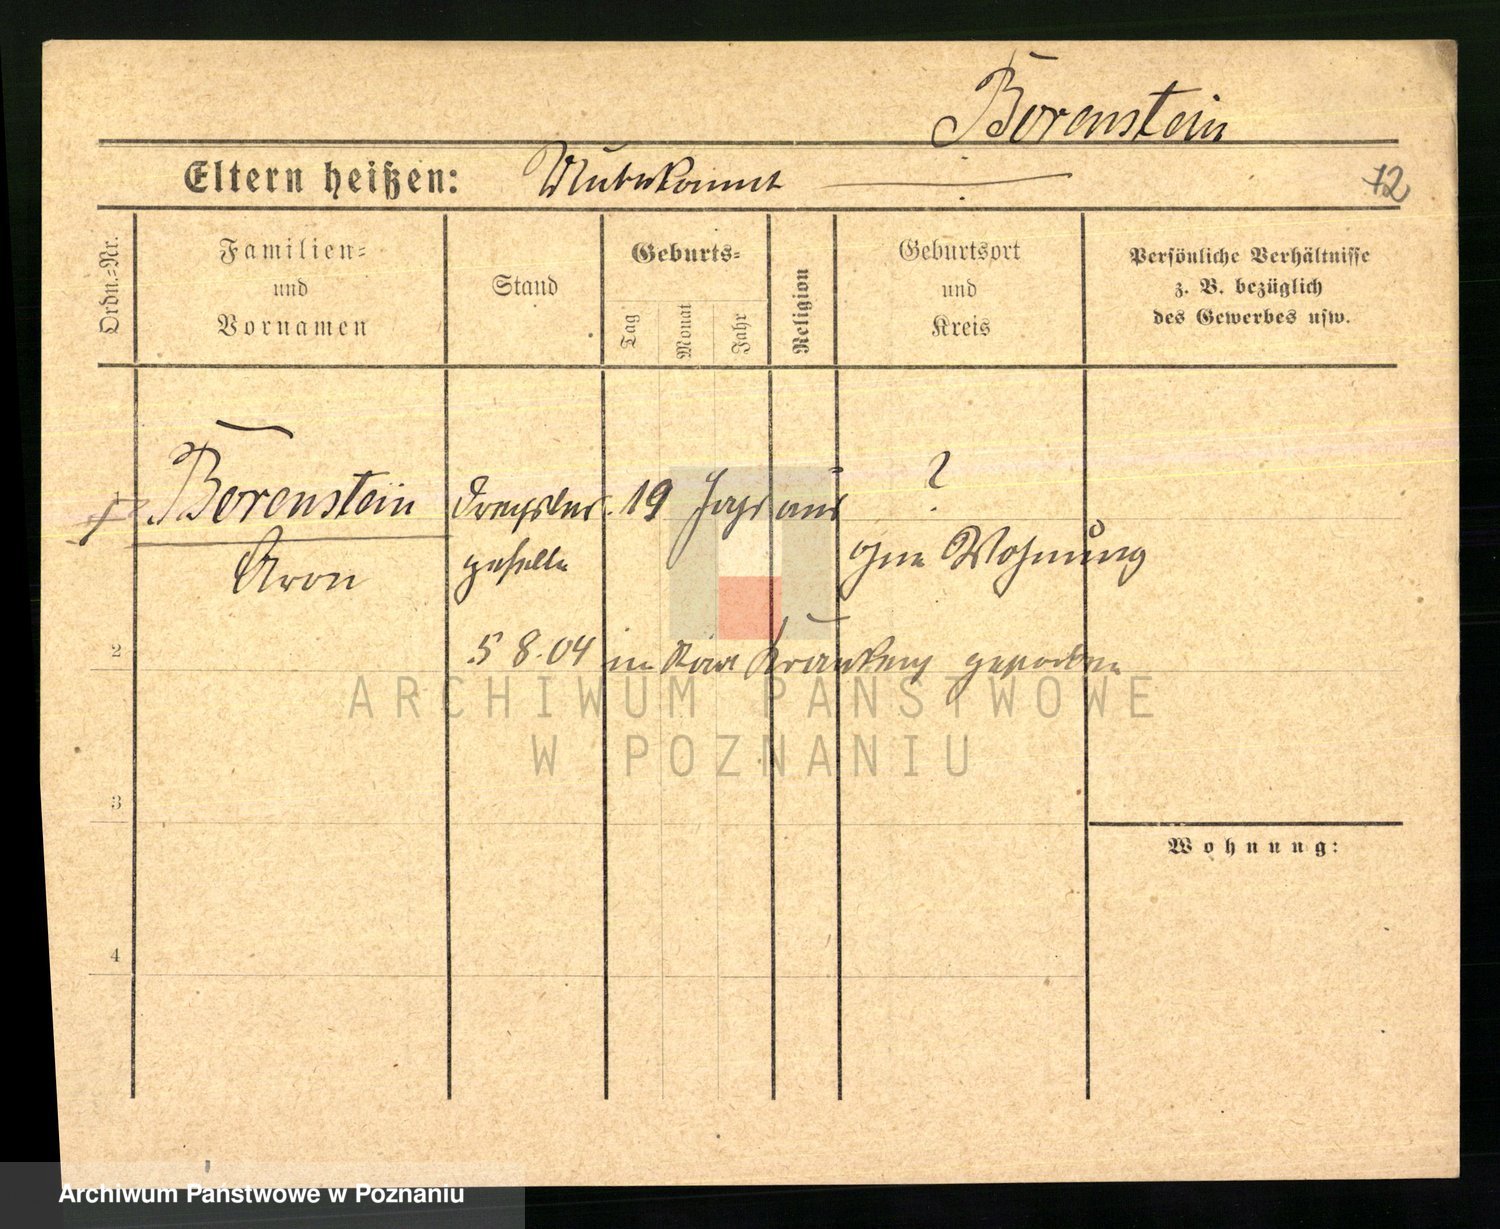 Borenstein
Eltern heißen: Unbekannt
12
Ordn.=Nr.
Familien=
und
Vornamen
Stand
Geburts=
Tag
Monat
Jahr
Religion
Geburtsort
und
Kreis
Persönliche Verhältnisse
z. B. bezüglich
des Gewerbes usw.
1 Borenstein Drechsler 19 Jahr aus ?
Aron geselle ohne Wohnung
2 5 8.04 in gestorben
3
Wohnung:
4
ARCHIWUM PAŃSTWOWE
W POZNANIU
Archiwum Państwowe w Poznaniu